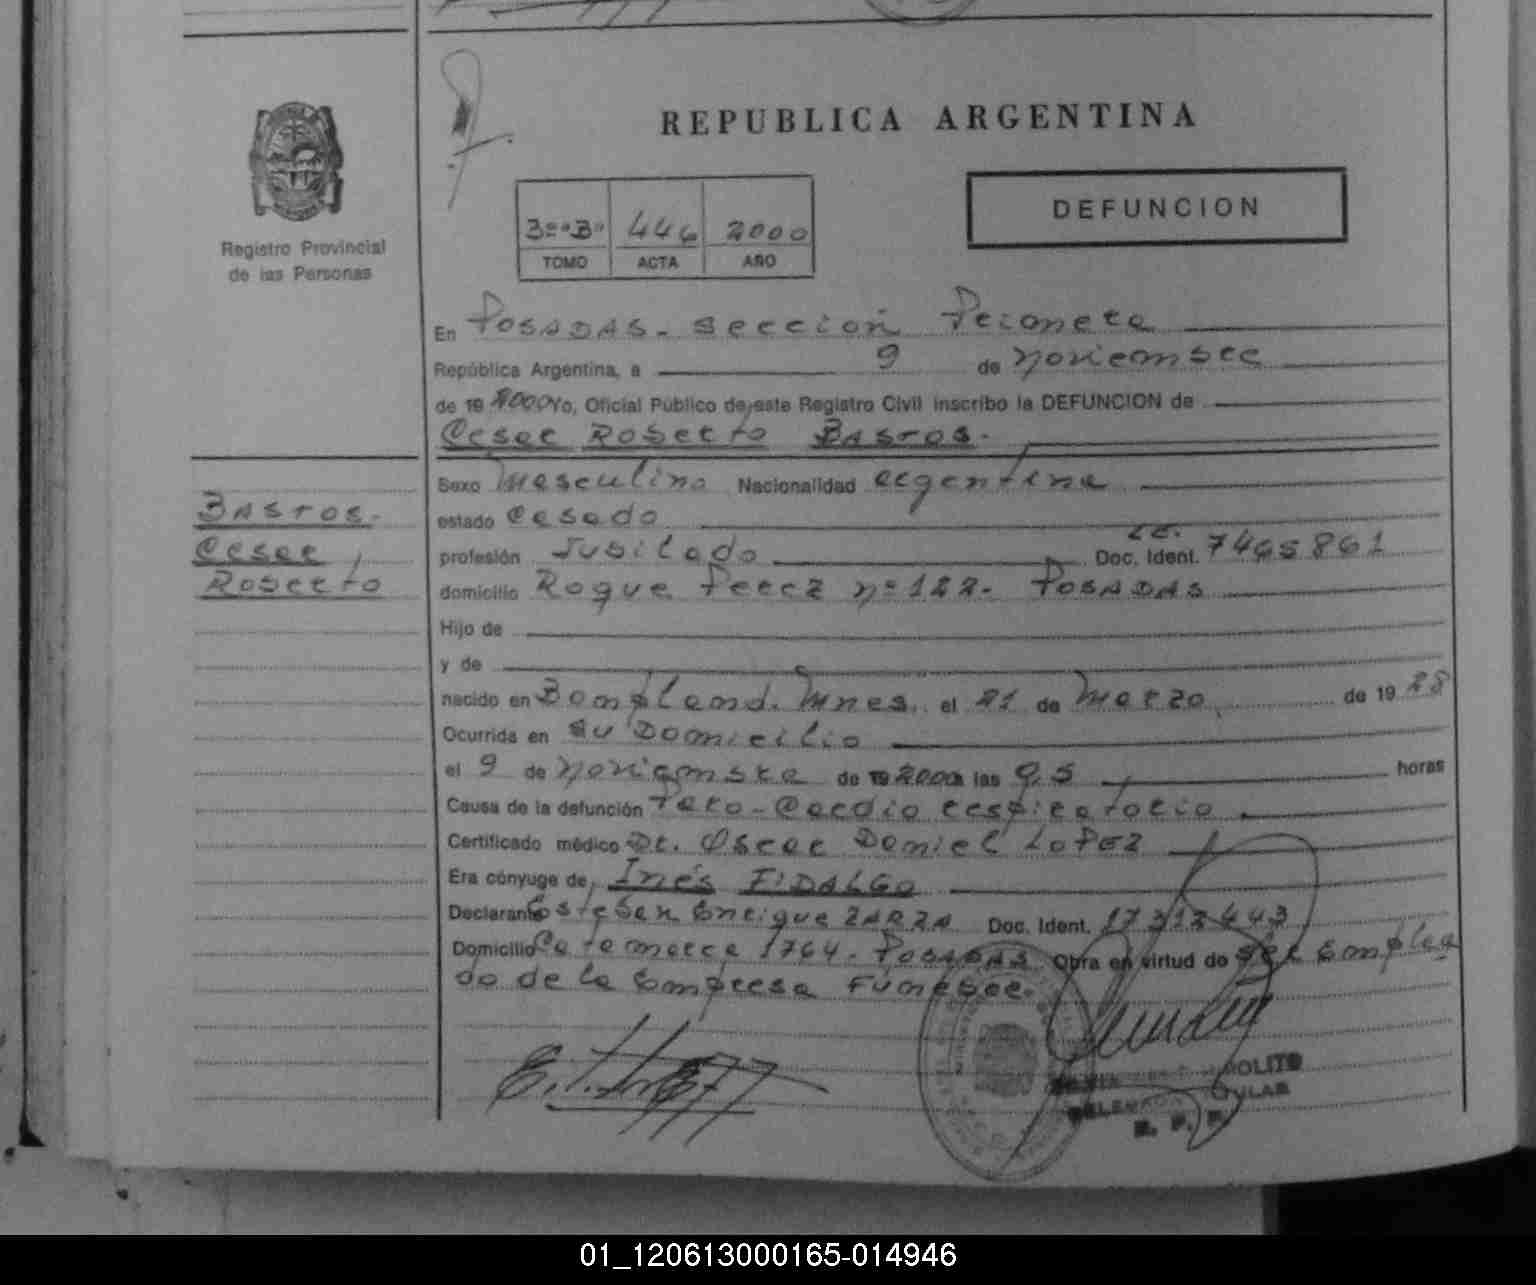 REPUBLICA ARGENTINA
Registro Provincial
de las Personas
3º"B" 446 2000
TOMO ACTA AÑO
DEFUNCION
En Posadas - Sección Primera
República Argentina, a 9 de Noviembre
de 19 2000 Yo, Oficial Público de este Registro Civil inscribo la DEFUNCION de
Cesar Roberto Bastos.
Bastos.
Cesar
Roberto
Sexo Masculino Nacionalidad argentina
estado Casado
profesión Jubilado Doc. Ident. L.E. 7465861
domicilio Roque Perez nº 122- Posadas
Hijo de
y de
nacido en Bompland. Mnes. el 21 de Marzo de 19 28
Ocurrida en su Domicilio
el 9 de Noviembre de 2000 a las 9,5 horas
Causa de la defunción Paro-Cardio respiratorio
Certificado médico Dr. Oscar Daniel LOPEZ
Era cónyuge de Inés FIDALGO
Declarante Esteban Enrique ZARZA Doc. Ident. 17312443
Domicilio Catamarca 1764- Posadas Obra en virtud de ser Emplea
do de la Empresa Funebre.
01_120613000165-014946